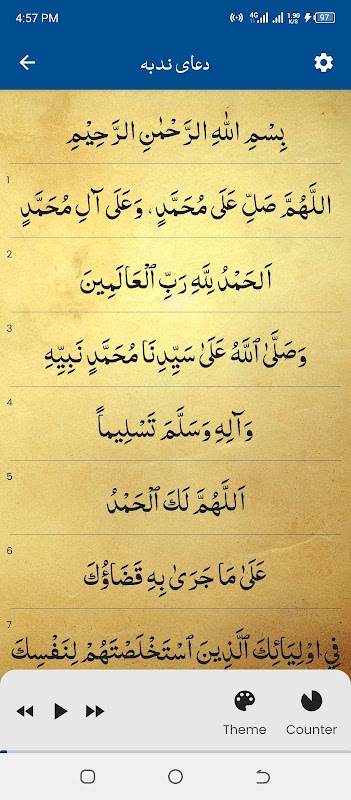 4:57 PM 4G 1.90 K/S 97
دعای ندبه
بِسْمِ اللهِ الرَّحْمٰنِ الرَّحِيْمِ
1
اللَّهُمَّ صَلِّ عَلَى مُحَمَّدٍ، وَعَلَى آلِ مُحَمَّدٍ
2
اَلحَمْدُ لِلَّهِ رَبِّ ٱلْعَالَمِينَ
3
وَصَلَّىٰ ٱللَّهُ عَلَىٰ سَيِّدِنَا مُحَمَّدٍ نَبِيِّهِ
4
وَآلِهِ وَسَلَّمَ تَسْلِيماً
5
اَللَّهُمَّ لَكَ ٱلْحَمْدُ
6
عَلَىٰ مَا جَرَىٰ بِهِ قَضَاؤُكَ
7
فِي اوْلِيَائِكَ ٱلَّذِينَ ٱسْتَخْلَصْتَهُمْ لِنَفْسِكَ
Theme Counter